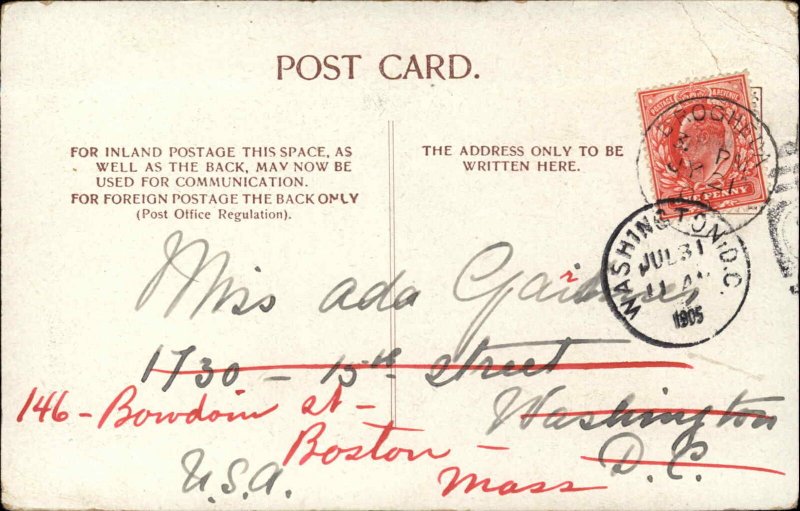 POST CARD.
FOR INLAND POSTAGE THIS SPACE, AS
WELL AS THE BACK, MAY NOW BE
USED FOR COMMUNICATION.
FOR FOREIGN POSTAGE THE BACK ONLY
(Post Office Regulation).
THE ADDRESS ONLY TO BE
WRITTEN HERE.
POSTAGE REVENUE
ONE PENNY
PM
JY 21
WASHINGTON, D.C.
JUL 31
11 AM
1905
Miss Ada
1730 - 15th Street
146 - Bowdoin St -
Washington
Boston -
D.C.
U.S.A.
Mass